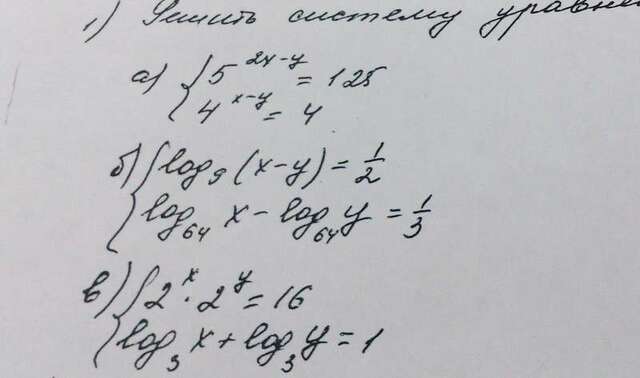 1) Решить систему уравне
а) { 5^{2x-y} = 125
4^{x-y} = 4
б) { log_9 (x-y) = 1/2
log_{64} x - log_{64} y = 1/3
в) { 2^x · 2^y = 16
log_3 x + log_3 y = 1